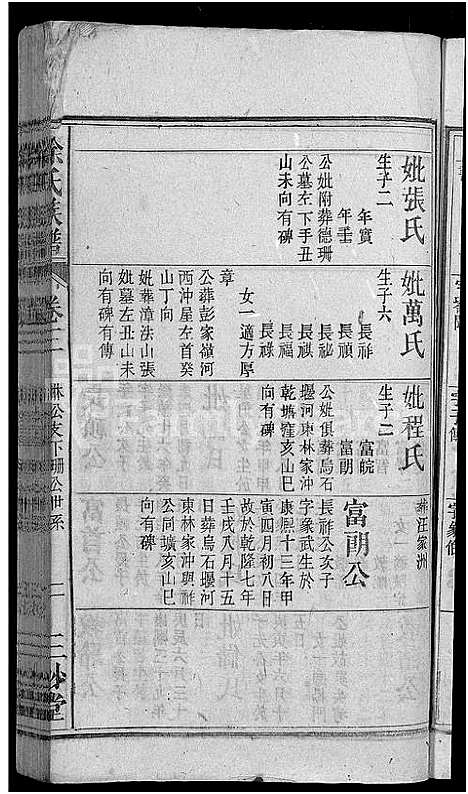 妣張氏
生子二
年寅
年壬
公妣附葬德珊
公墓左下手丑
山未向有碑
妣萬氏
生子六
長祥
長禎
長祕
長福
長祿
女一適方厚
章
公葬彭家嶺河
西沖屋左首癸
山丁向
妣葬漳法山張
妣墓左丑山未
向有碑有傳
妣程氏
生子二
富皖
富朗
公妣俱葬烏石
堰河東林家沖
乾塝窪亥山巳
向有碑
葬汪家洲
富朗公
長祥公次子
字象武生於
康熙十三年甲
寅四月初八日
故於乾隆七年
壬戌八月十五
日葬烏石堰河
東林家沖與祥
公同壙亥山巳
向有碑
余氏族譜
卷三
公支下珊公世系